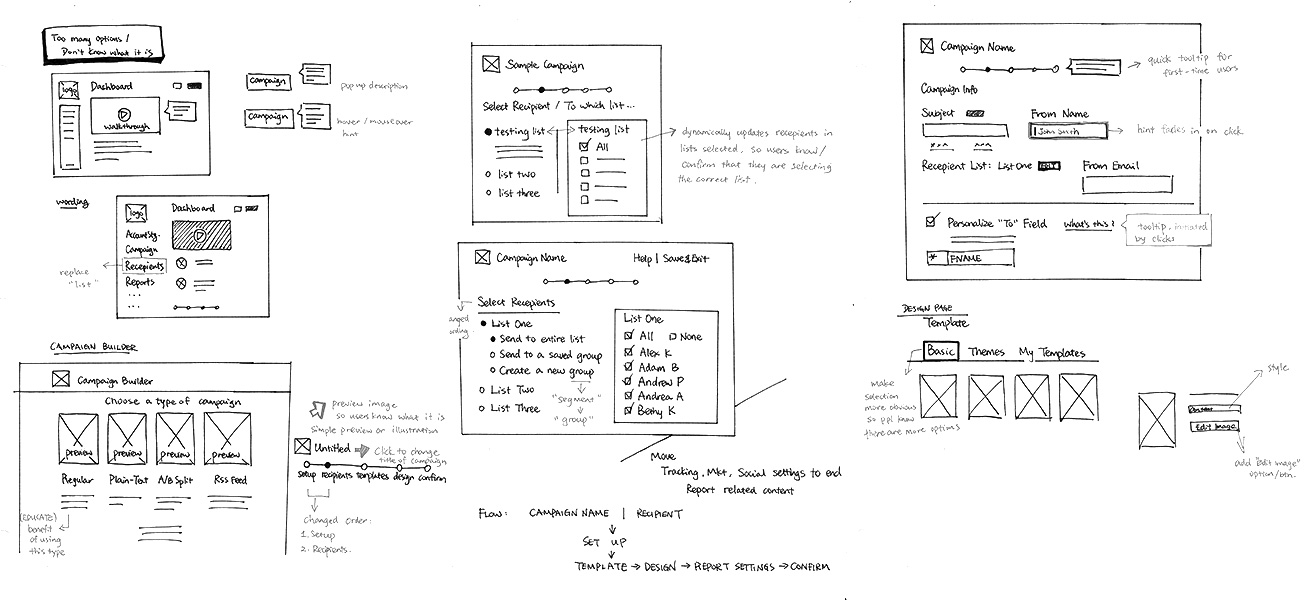 Too many options /
Don't know what it is
logo
Dashboard
walkthrough
campaign
pop up description
campaign
hover / mouseover
hint
wording
logo
Dashboard
Campaign
Recepients
Reports
...
...
replace
"list"
CAMPAIGN BUILDER
Campaign Builder
Choose a type of campaign
preview
preview
preview
preview
Regular
Plain-Text
A/B Split
Rss Feed
(EDUCATE)
benefit
of using
this type
preview image
so users know what it is
simple preview or illustration
Untitled
Click to change
title of campaign
setup recipients templates design confirm
Changed order:
1. Setup
2. Recipients.
Sample Campaign
Select Recipient / To which list...
testing list
list two
list three
testing list
All
dynamically updates recepients in
lists selected, so users know /
confirm that they are selecting
the correct list.
Campaign Name
Help | Save & Exit
Select Recepients
List One
Send to entire list
Send to a saved group
Create a new group
List Two
List Three
"segment"
"group"
List One
All
None
Alex K
Adam B
Andrew P
Andrea A
Bethy K
Move
Tracking, Mkt, Social settings to end
Report related content
Flow: CAMPAIGN NAME | RECIPIENT
SET UP
TEMPLATE → DESIGN → REPORT SETTINGS → CONFIRM
Campaign Name
quick tooltip for
first-time users
Campaign Info
Subject
From Name
John Smith
hint fades in on click
Recepient List: List One EDIT
From Email
Personalize "To" Field
what's this?
tooltip, initiated
by clicks
* FNAME
DESIGN PAGE
Template
Basic
Themes
My Templates
make
selection
more obvious
so ppl know
there are more options
style
Edit Image
add "Edit image"
option/btn.